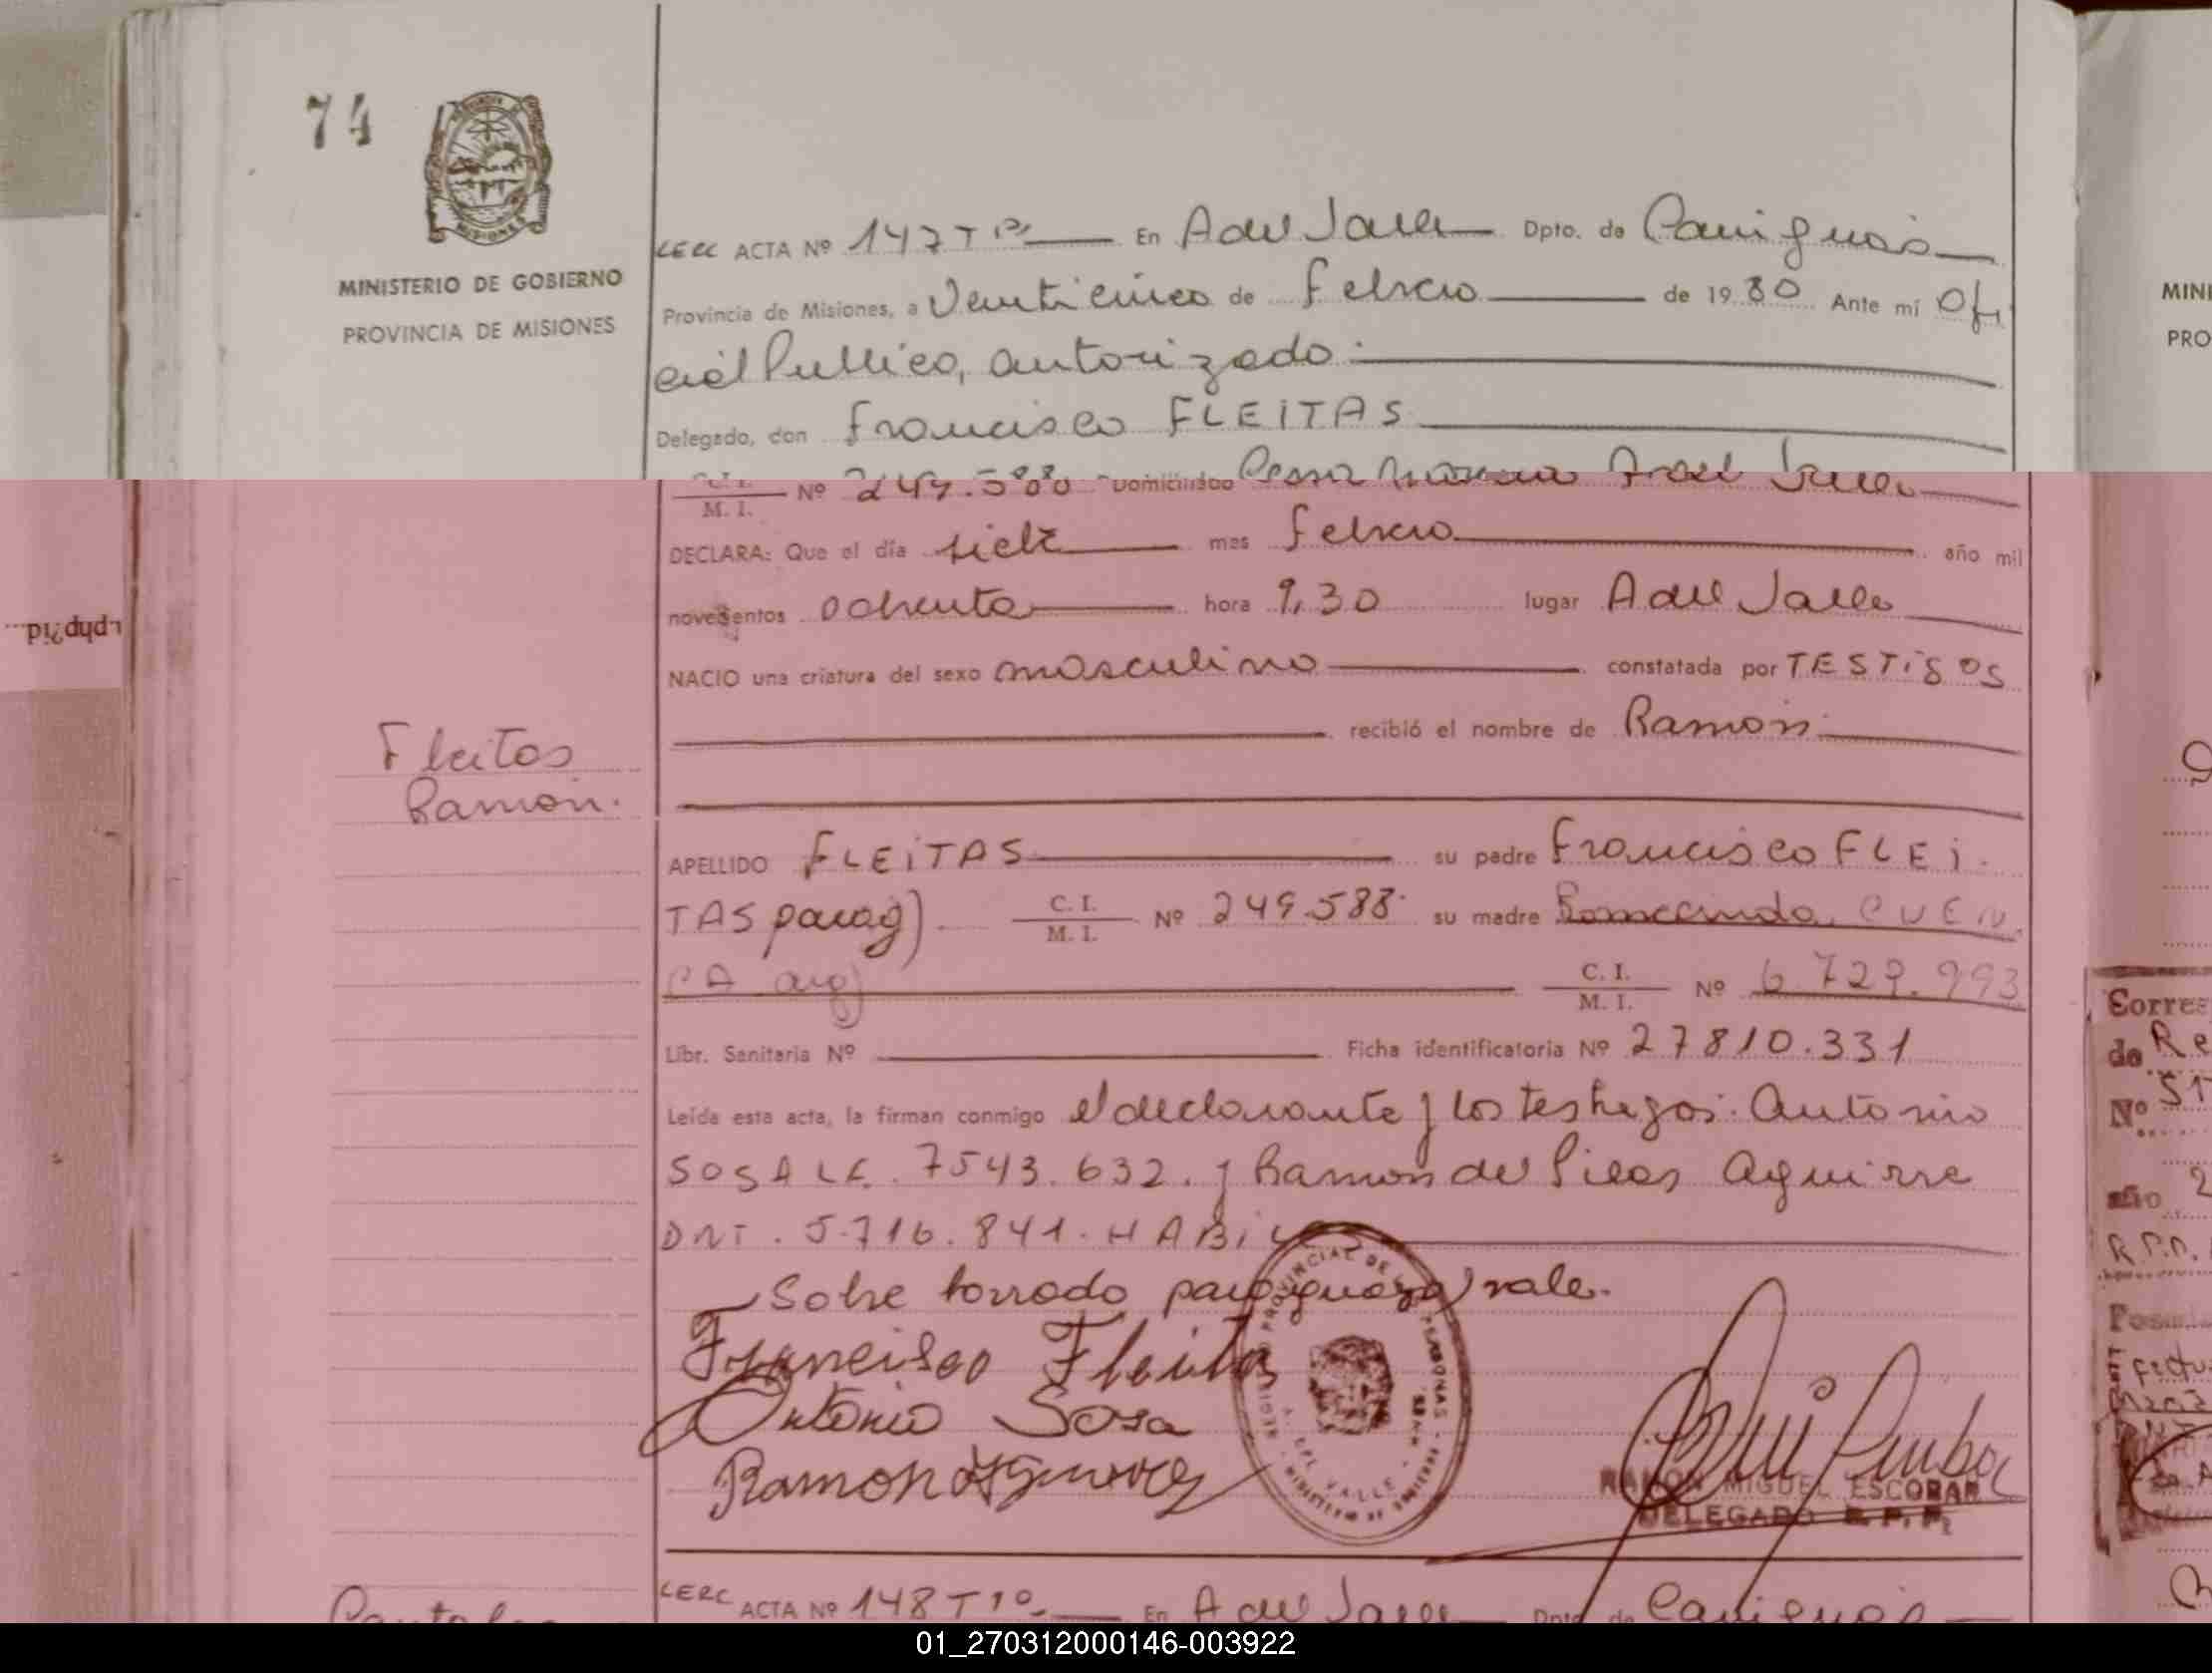 74
MINISTERIO DE GOBIERNO
PROVINCIA DE MISIONES
CERC ACTA Nº 147 T 1º En A del Valle Dpto. de Cainguás
Provincia de Misiones, a Veinticinco de Febrero de 1980 Ante mí Ofi
cial Publico, autorizado:
Delegado, don Francisco FLEITAS
C. I. M. I. Nº 249.588 Domiciliado A del Valle
DECLARA: Que el día siete mes Febrero año mil
novecientos ochenta hora 9,30 lugar A del Valle
NACIO una criatura del sexo masculino constatada por TESTIGOS
recibió el nombre de Ramón
Fleitas
Ramon.
APELLIDO FLEITAS su padre Francisco FLEI
TAS parag) C. I. M. I. Nº 249.588 su madre CUEN
CA arg) C. I. M. I. Nº 6.729.993
Libr. Sanitaria Nº Ficha identificatoria Nº 27810.331
Leída esta acta, la firman conmigo el declarante y los testigos: Antonio
SOSA L.E. 7543.632. y Ramon del Aguirre
DNI. 5.716.841. HABIL
Sobre borrado paraguayo) vale.
Francisco Fleita
Antonio Sosa
Ramon Aguirre
RAMON MIGUEL ESCOBAR
DELEGADO R. P. P.
CERC ACTA Nº 148 T 1º En A del Valle Dpto de Cainguás
.php?id...
MINI
PRO
Corres
de Re
Nº 51
año 2
01_270312000146-003922